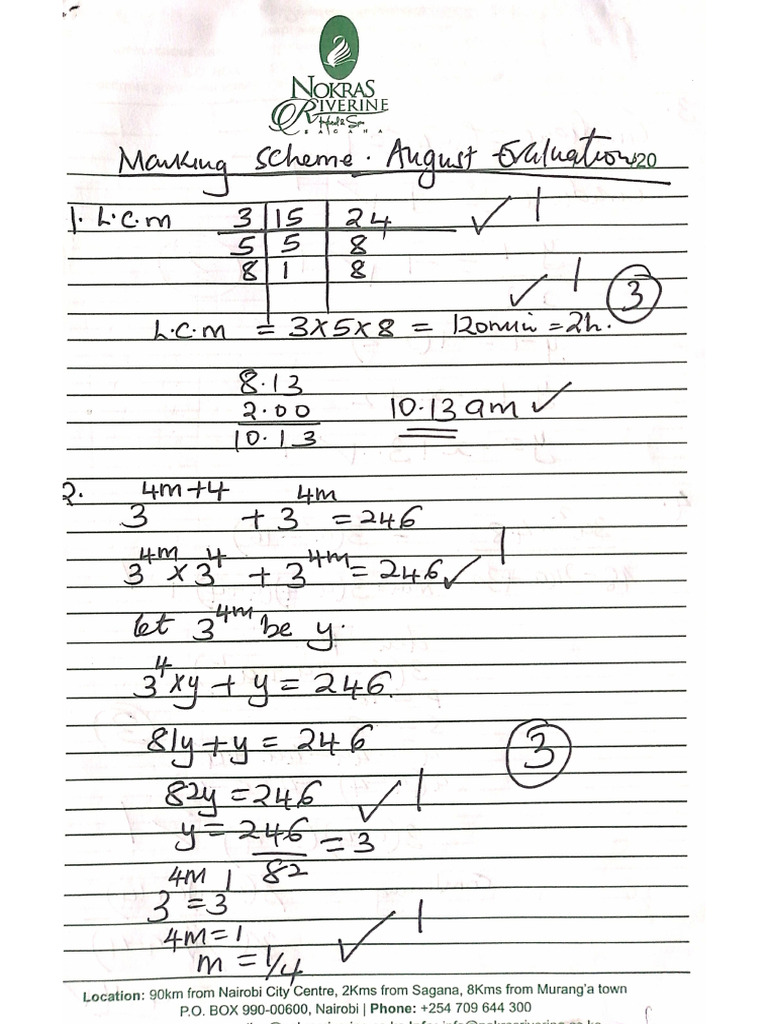 NOKRAS
RIVERINE
Hotel & Spa
SAGANA
Marking Scheme. August Evaluation 20
1. L.C.M 3 | 15 | 24 ✓ 1
5 | 5 | 8
8 | 1 | 8
✓ 1 3
L.C.M = 3×5×8 = 120min = 2h.
8.13
2.00 10.13 am ✓
10.13
2. 3^{4m+4} + 3^{4m} = 246
3^{4m} × 3^4 + 3^{4m} = 246 ✓ 1
let 3^{4m} be y.
3^4 × y + y = 246
81y + y = 246 3
82y = 246 ✓ 1
y = 246/82 = 3
3^{4m} = 3^1
4m = 1
m = 1/4 ✓ 1
Location: 90km from Nairobi City Centre, 2Kms from Sagana, 8Kms from Murang'a town
P.O. BOX 990-00600, Nairobi | Phone: +254 709 644 300